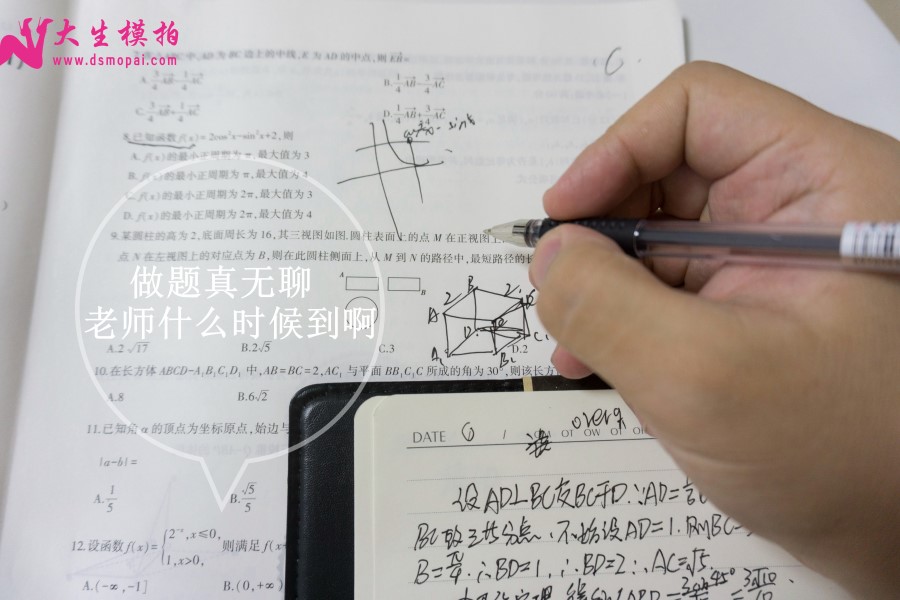 大生模拍
www.dsmopai.com
BC 边上的中线,E 为 AD 的中点,则 EB=
A. 3/4 AB - 1/4 AC
B. 1/4 AB - 3/4 AC
C. 3/4 AB + 1/4 AC
D. 1/4 AB + 3/4 AC
8.已知函数 f(x)=2cos²x-sin²x+2,则
A. f(x)的最小正周期为 π,最大值为 3
B. f(x)的最小正周期为 π,最大值为 4
C. f(x)的最小正周期为 2π,最大值为 3
D. f(x)的最小正周期为 2π,最大值为 4
9.某圆柱的高为 2,底面周长为 16,其三视图如图.圆柱表面上的点 M 在正视图上
点 N 在左视图上的对应点为 B,则在此圆柱侧面上,从 M 到 N 的路径中,最短路径的长
做题真无聊
老师什么时候到啊
A
B
A.2√17
B.2√5
C.3
D.2
10.在长方体 ABCD-A₁B₁C₁D₁ 中,AB=BC=2,AC₁ 与平面 BB₁C₁C 所成的角为 30°,则该长方
A.8
B.6√2
11.已知角 α 的顶点为坐标原点,始边与
|a-b|=
A. 1/5
B. √5/5
12.设函数 f(x)={2⁻ˣ,x≤0, 1,x>0, 则满足 f(x
A.(-∞,-1]
B.(0,+∞)
DATE 6 /
设AD⊥BC交BC于D.∴AD=
BC的三等分点.不妨设AD=1.则BC=
B=π/4.∴BD=1,∴BD=2∴AC=√5.